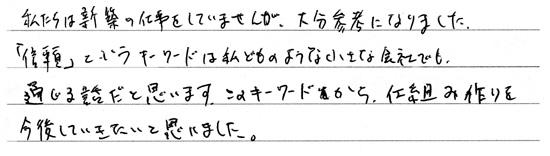 私たちは新築の仕事をしていませんが、大分参考になりました。
「信頼」というキーワードは私どものような小さな会社でも、
通じる話だと思います。このキーワードから、仕組み作りを
今後していきたいと思いました。